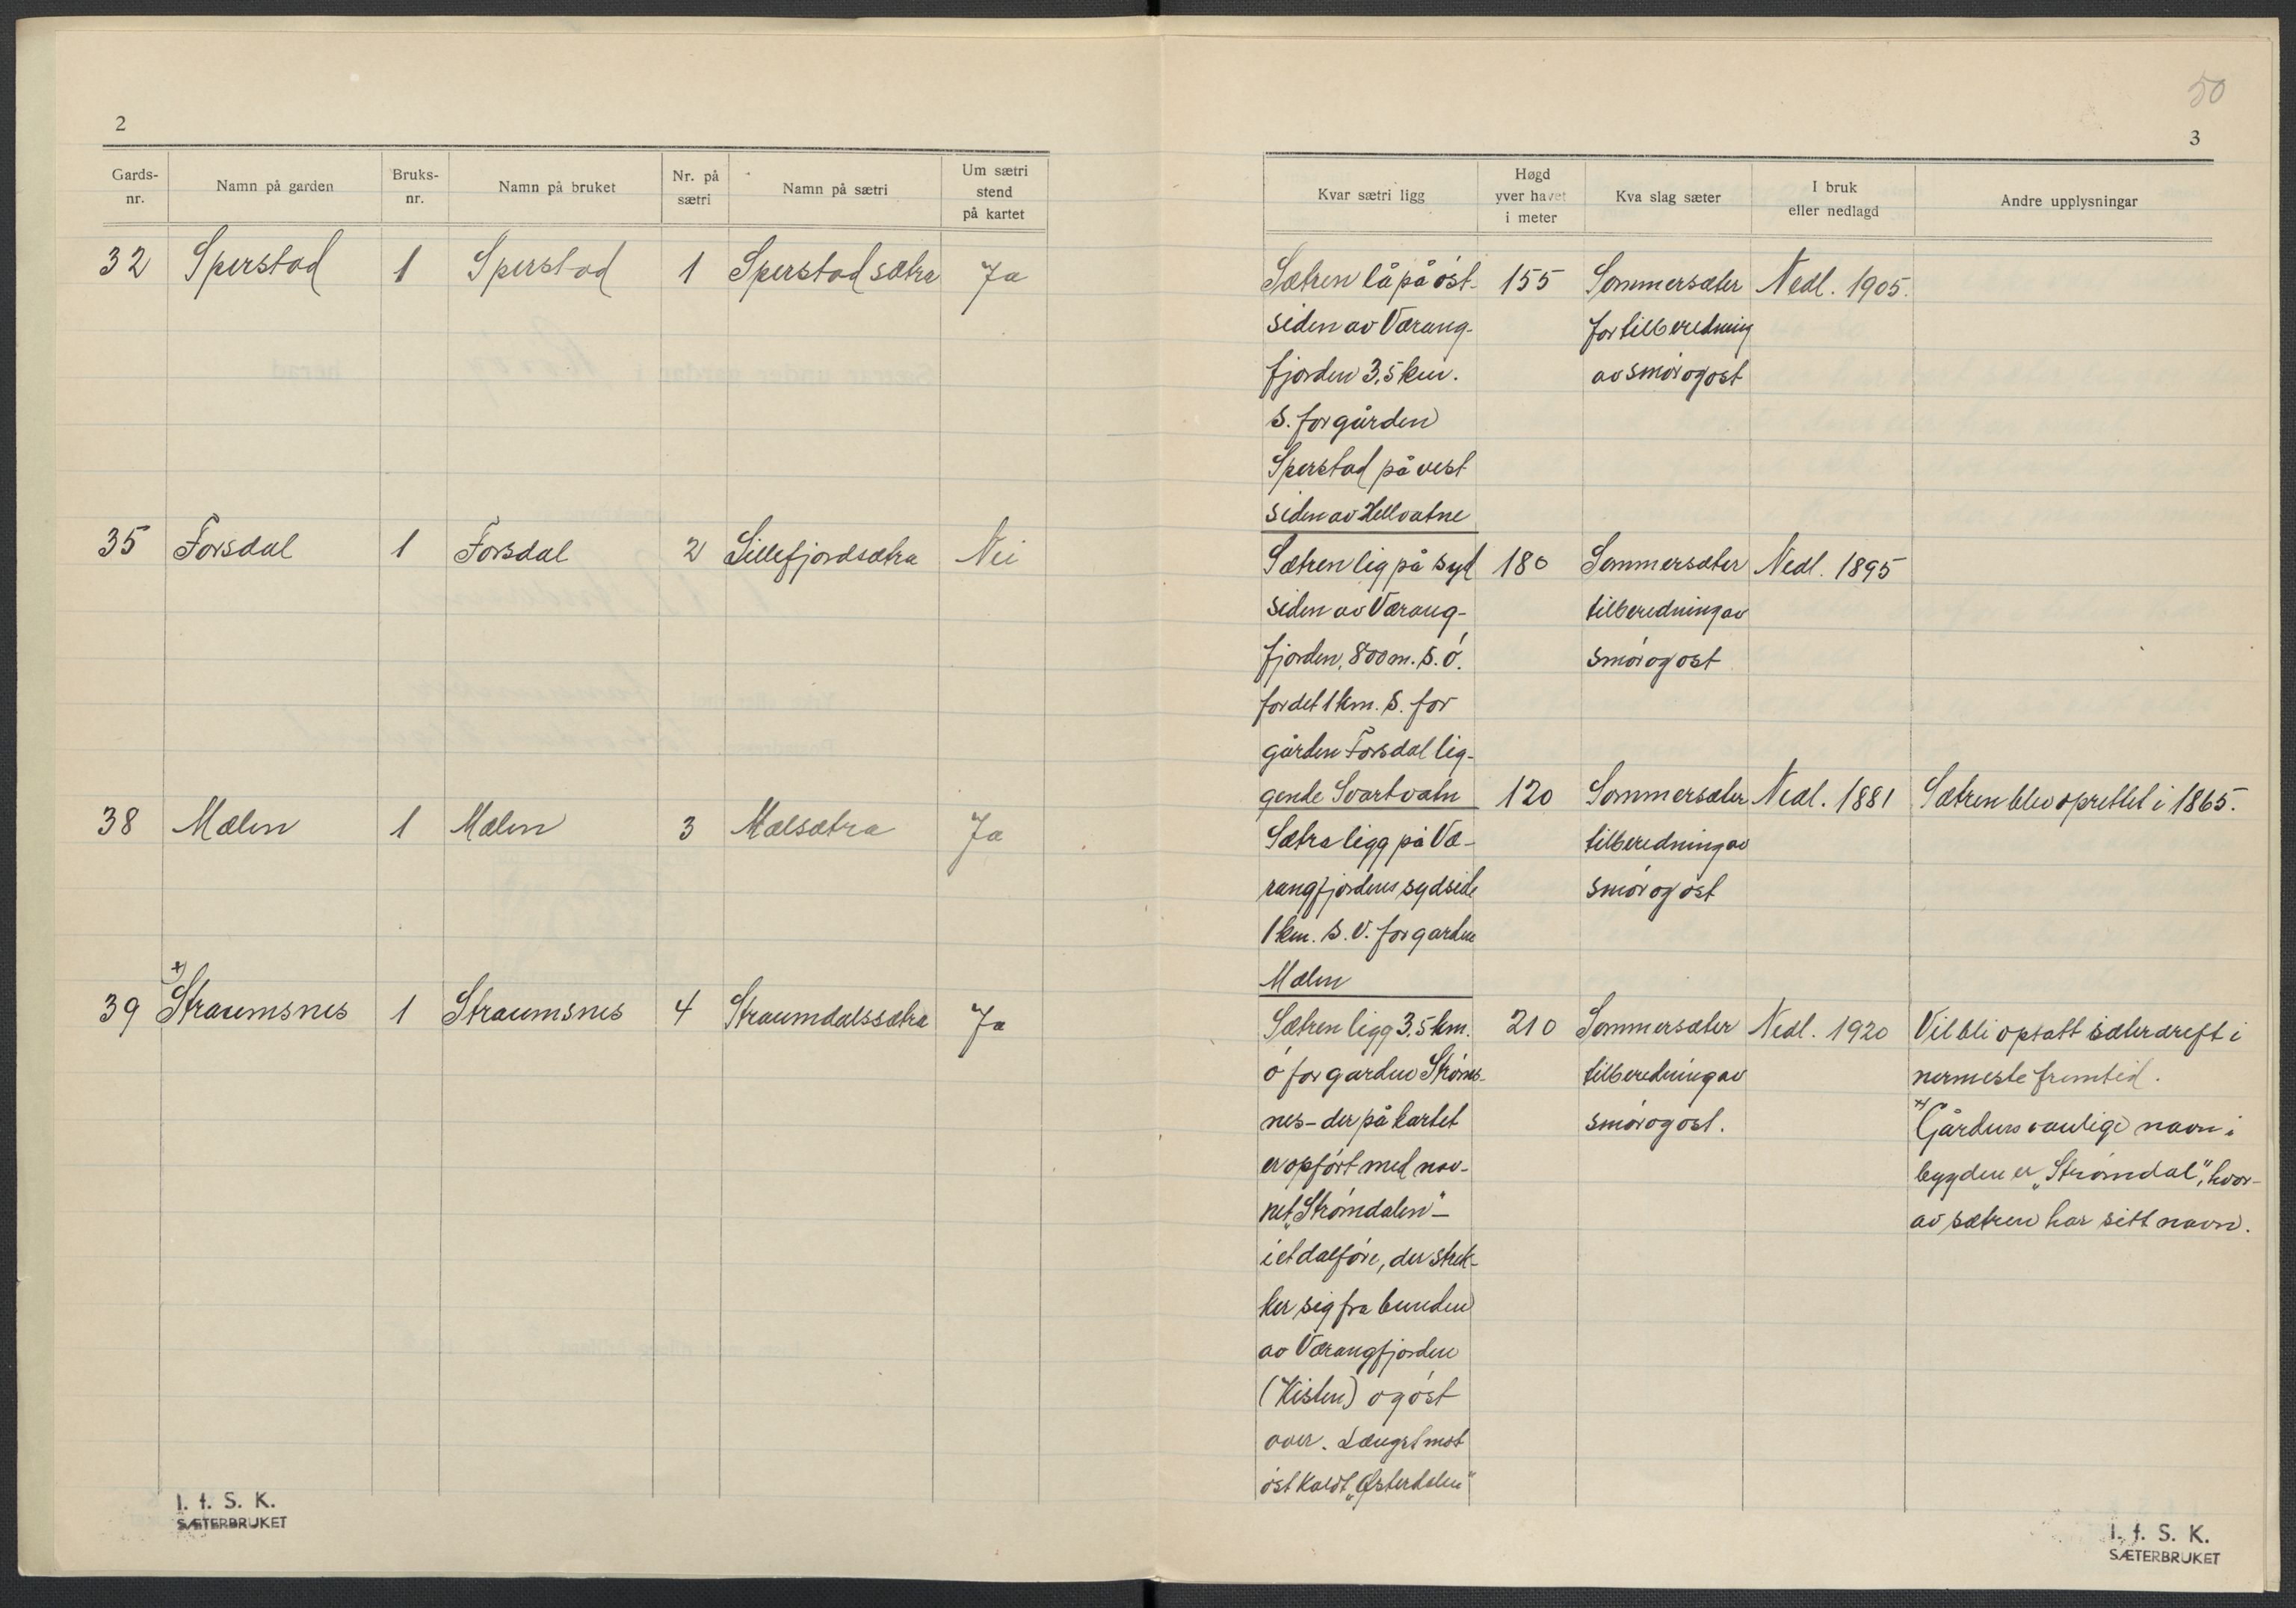 2
Gards-
nr.
Namn på garden
Bruks-
nr.
Namn på bruket
Nr. på
sætri
Namn på sætri
Um sætri
stend
på kartet
32 Sperstad 1 Sperstad 1 Sperstadsætra Ja
35 Forsdal 1 Forsdal 2 Lillefjordsætra Nei
38 Mælen 1 Mælen 3 Mælsætra Ja
x)
39 Straumsnes 1 Straumsnes 4 Straumdalssætra Ja
I. f. S. K.
SÆTERBRUKET
50
3
Kvar sætri ligg
Høgd
yver havet
i meter
Kva slag sæter
I bruk
eller nedlagd
Andre upplysningar
Sætren lå på øst- 155 Sommersæter Nedl. 1905.
siden av Værang- for tilberedning
fjorden 3,5 km. av smør og ost
S. for gården
Sperstad på vest
siden av Hellvatne
Sætren lig på syd 180 Sommersæter Nedl. 1895
siden av Værang- tilberedning av
fjorden, 800 m. S. ø. smør og ost
for det 1 km. S. for
gården Forsdal lig-
gende Svartvatn 120 Sommersæter Nedl. 1881 Sætren blev oprettet i 1865.
Sætra ligg på Væ- tilberedning av
rangfjordens sydside smør og ost
1 km. S. V. for garden
Mælen
Sætren ligg 3,5 km. 210 Sommersæter Nedl. 1920 Vil bli opsatt sæterdreft i
ø for garden Strøms- tilberedning av nermeste fremtid.
nes - der på kartet smør og ost. x) Gårdens vanlige navn i
er opført med nav- bygden er „Strømdal", hvor-
net „Strømdalen" - av sætren har sitt navn.
i et dalføre, der strek-
ker sig fra bunden
av Værangfjorden
(Kisten) og øst
over. Længst mot
øst kaldt „Østerdalen"
I. f. S. K.
SÆTERBRUKET